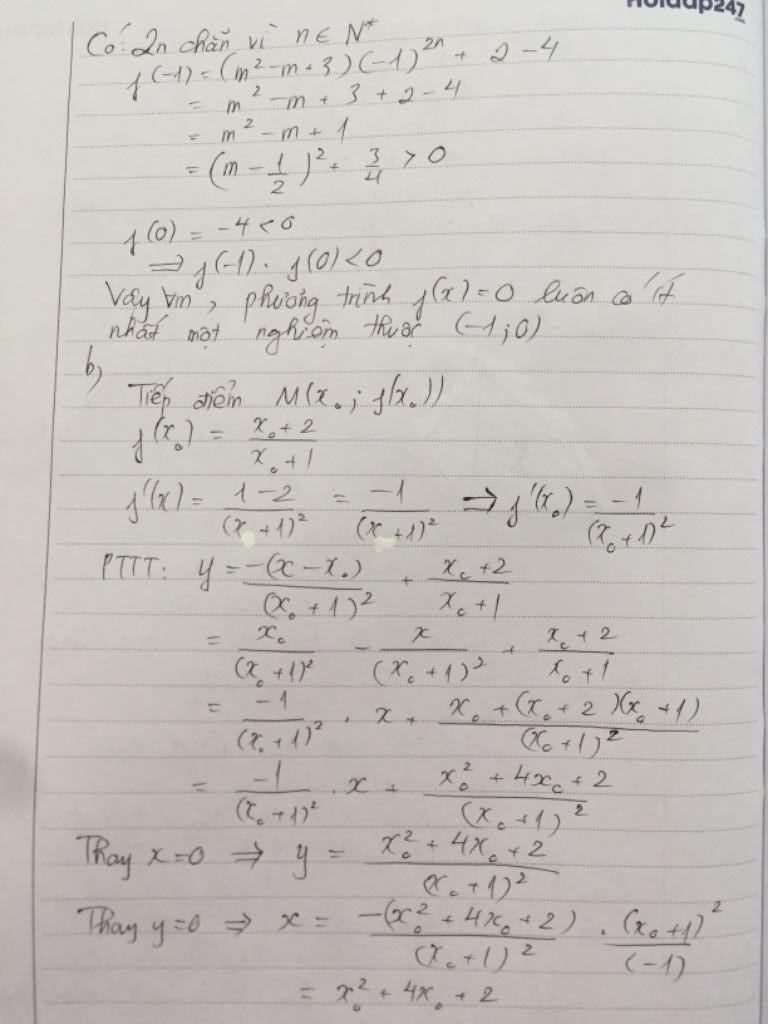 Hoidap247
Có: 2n chẵn vì n ∈ N*
f(-1) = (m² - m + 3)(-1)²ⁿ + 2 - 4
= m² - m + 3 + 2 - 4
= m² - m + 1
= (m - 1/2)² + 3/4 > 0
f(0) = -4 < 0
⇒ f(-1) . f(0) < 0
Vậy ∀m, phương trình f(x) = 0 luôn có ít
nhất một nghiệm thuộc (-1; 0)
b,
Tiếp điểm M(x₀; f(x₀))
f(x₀) = (x₀ + 2)/(x₀ + 1)
f'(x) = (1 - 2)/(x + 1)² = -1/(x + 1)² ⇒ f'(x₀) = -1/(x₀ + 1)²
PTTT: y = -(x - x₀)/(x₀ + 1)² + (x₀ + 2)/(x₀ + 1)
= x₀/(x₀ + 1)² - x/(x₀ + 1)² + (x₀ + 2)/(x₀ + 1)
= -1/(x₀ + 1)² . x + (x₀ + (x₀ + 2)(x₀ + 1))/(x₀ + 1)²
= -1/(x₀ + 1)² . x + (x₀² + 4x₀ + 2)/(x₀ + 1)²
Thay x = 0 ⇒ y = (x₀² + 4x₀ + 2)/(x₀ + 1)²
Thay y = 0 ⇒ x = -(x₀² + 4x₀ + 2)/(x₀ + 1)² . (x₀ + 1)²/(-1)
= x₀² + 4x₀ + 2